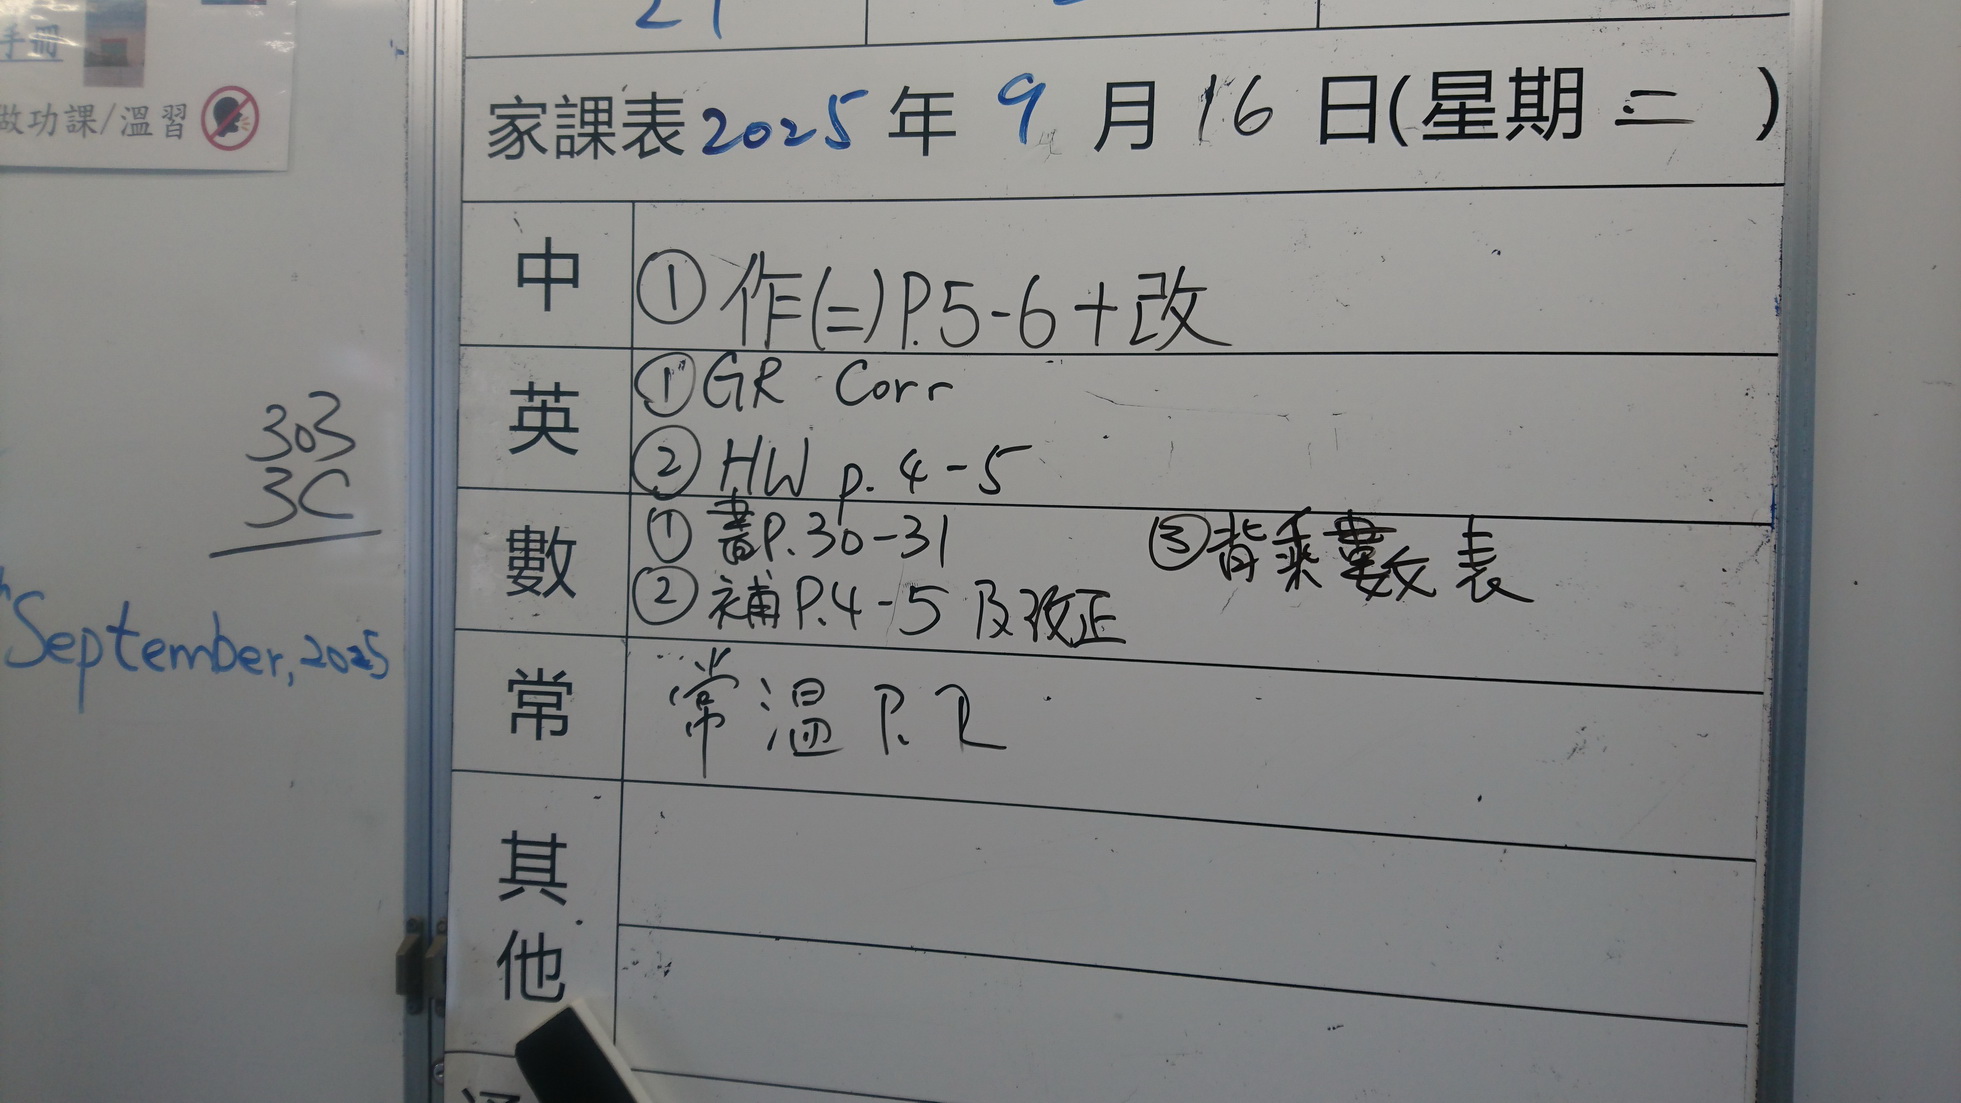 手冊
做功課/溫習
21
家課表2025年9月16日(星期二)
中
① 作(二)P.5-6+改
英
① GR Corr
② HW p.4-5
數
① 書P.30-31
② 補P.4-5及改正
③背乘數表
常
常溫P.2
其他
303
3C
September, 2025